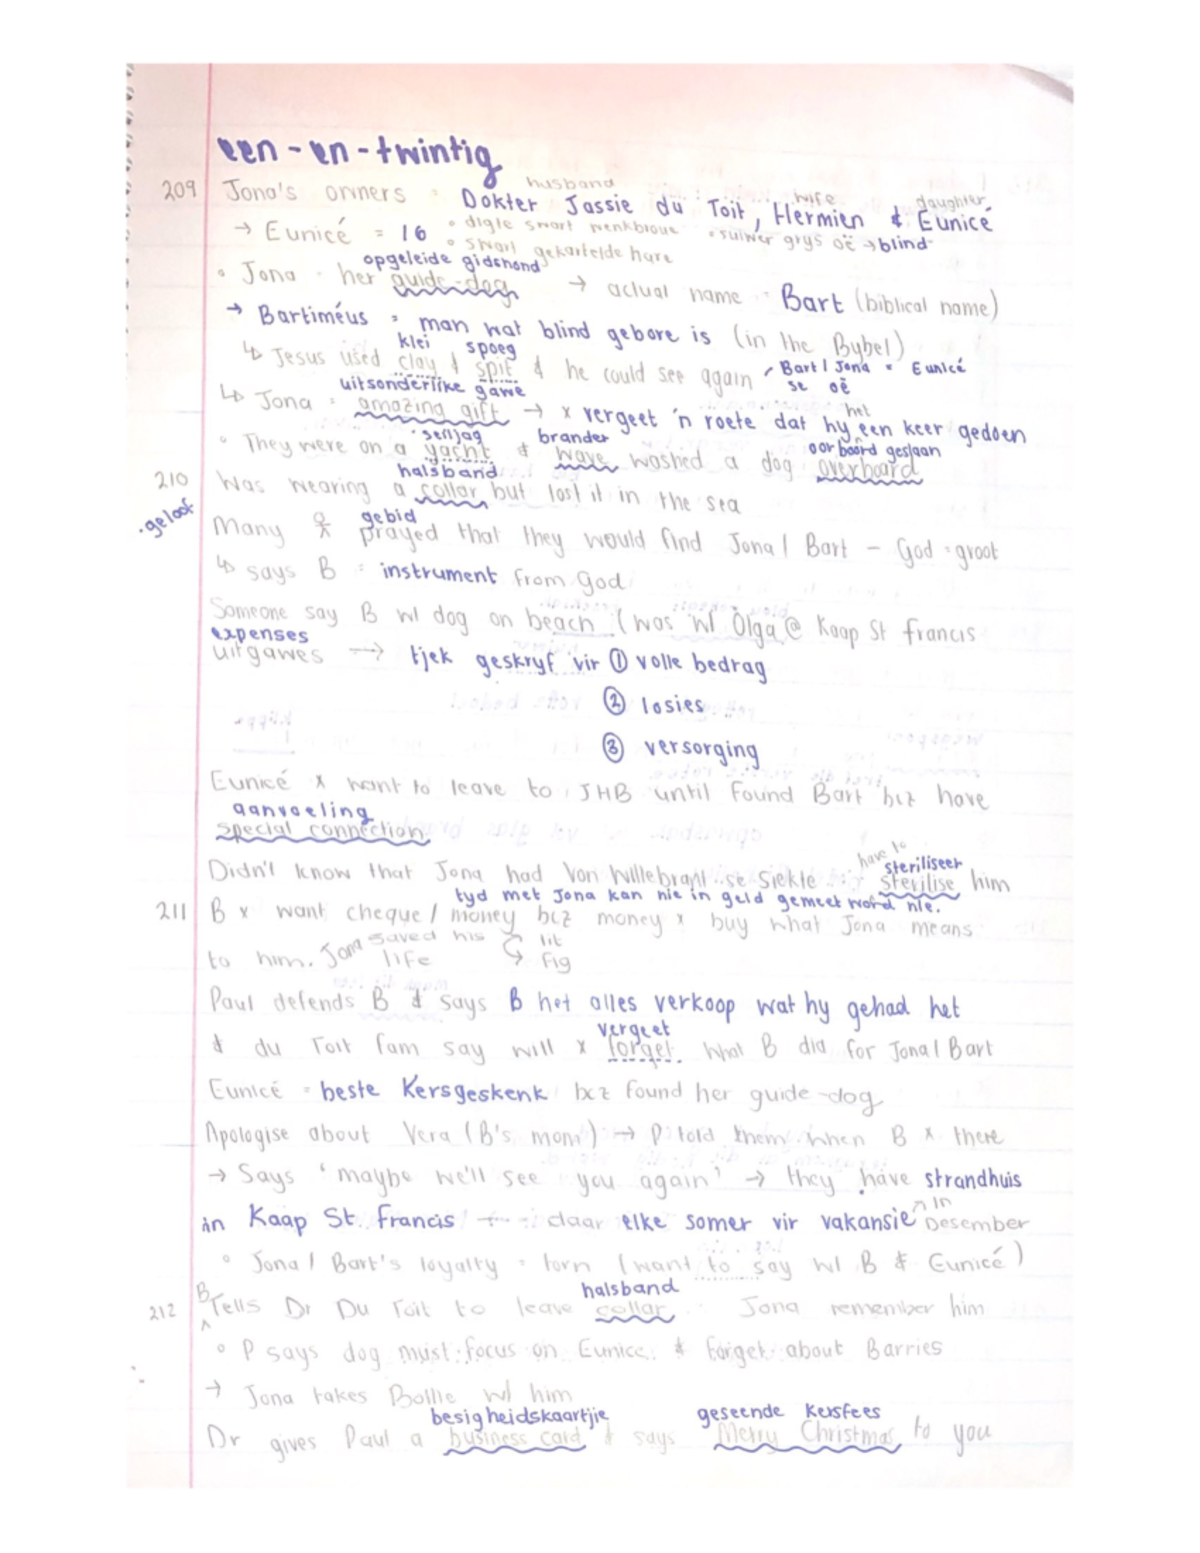 een-en-twintig
husband wife daughter
209 Jona's owners = Dokter Jassie du Toit, Hermien & Eunicé
→ Eunicé = 16 • digte swart wenkbroue • suiwer grys oë → blind
• swart gekartelde hare
opgeleide gidshond
• Jona = her guide-dog → actual name = Bart (biblical name)
→ Bartiméus = man wat blind gebore is (in the Bybel)
klei spoeg
↳ Jesus used clay & spit & he could see again / Bart / Jona = Eunicé se oë
uitsonderlike gawe
↳ Jona = amazing gift → x vergeet 'n roete dat hy een keer gedoen het
seiljag brander oorboord geslaan
• They were on a yacht & wave washed a dog overboard
halsband
210 Was wearing a collar but lost it in the sea
•geloof
gebid
Many prayed that they would find Jona / Bart – God = groot
↳ says B = instrument from God
Someone say B w/ dog on beach (was w/ Olga @ Kaap St Francis
expenses
uitgawes → tjek geskryf vir ① volle bedrag
② losies
③ versorging
Eunicé x want to leave to JHB until found Bart bcz have
aanvoeling
special connection.
have to steriliseer
Didn't know that Jona had Von Willebrant se Siekte sterilise him
tyd met Jona kan nie in geld gemeet word nie.
211 B x want cheque / money bcz money x buy what Jona means
to him. Jona saved his life lit
fig
Paul defends B & says B het alles verkoop wat hy gehad het
vergeet
& du Toit fam say will x forget. what B did for Jona / Bart
Eunicé = beste Kersgeskenk bcz found her guide-dog
Apologise about Vera (B's mom) → P told them when B x there
→ Says 'maybe we'll see you again' → they have strandhuis
in Kaap St Francis daar elke somer vir vakansie in Desember
• Jona / Bart's loyalty = torn (want to say w/ B & Eunicé)
halsband
212 B Tells Dr Du Toit to leave collar Jona remember him
• P says dog must focus on Eunice & forget about Barries
→ Jona takes Bollie w/ him
besigheidskaartjie geseende Kersfees
Dr gives Paul a business card & says Merry Christmas to you